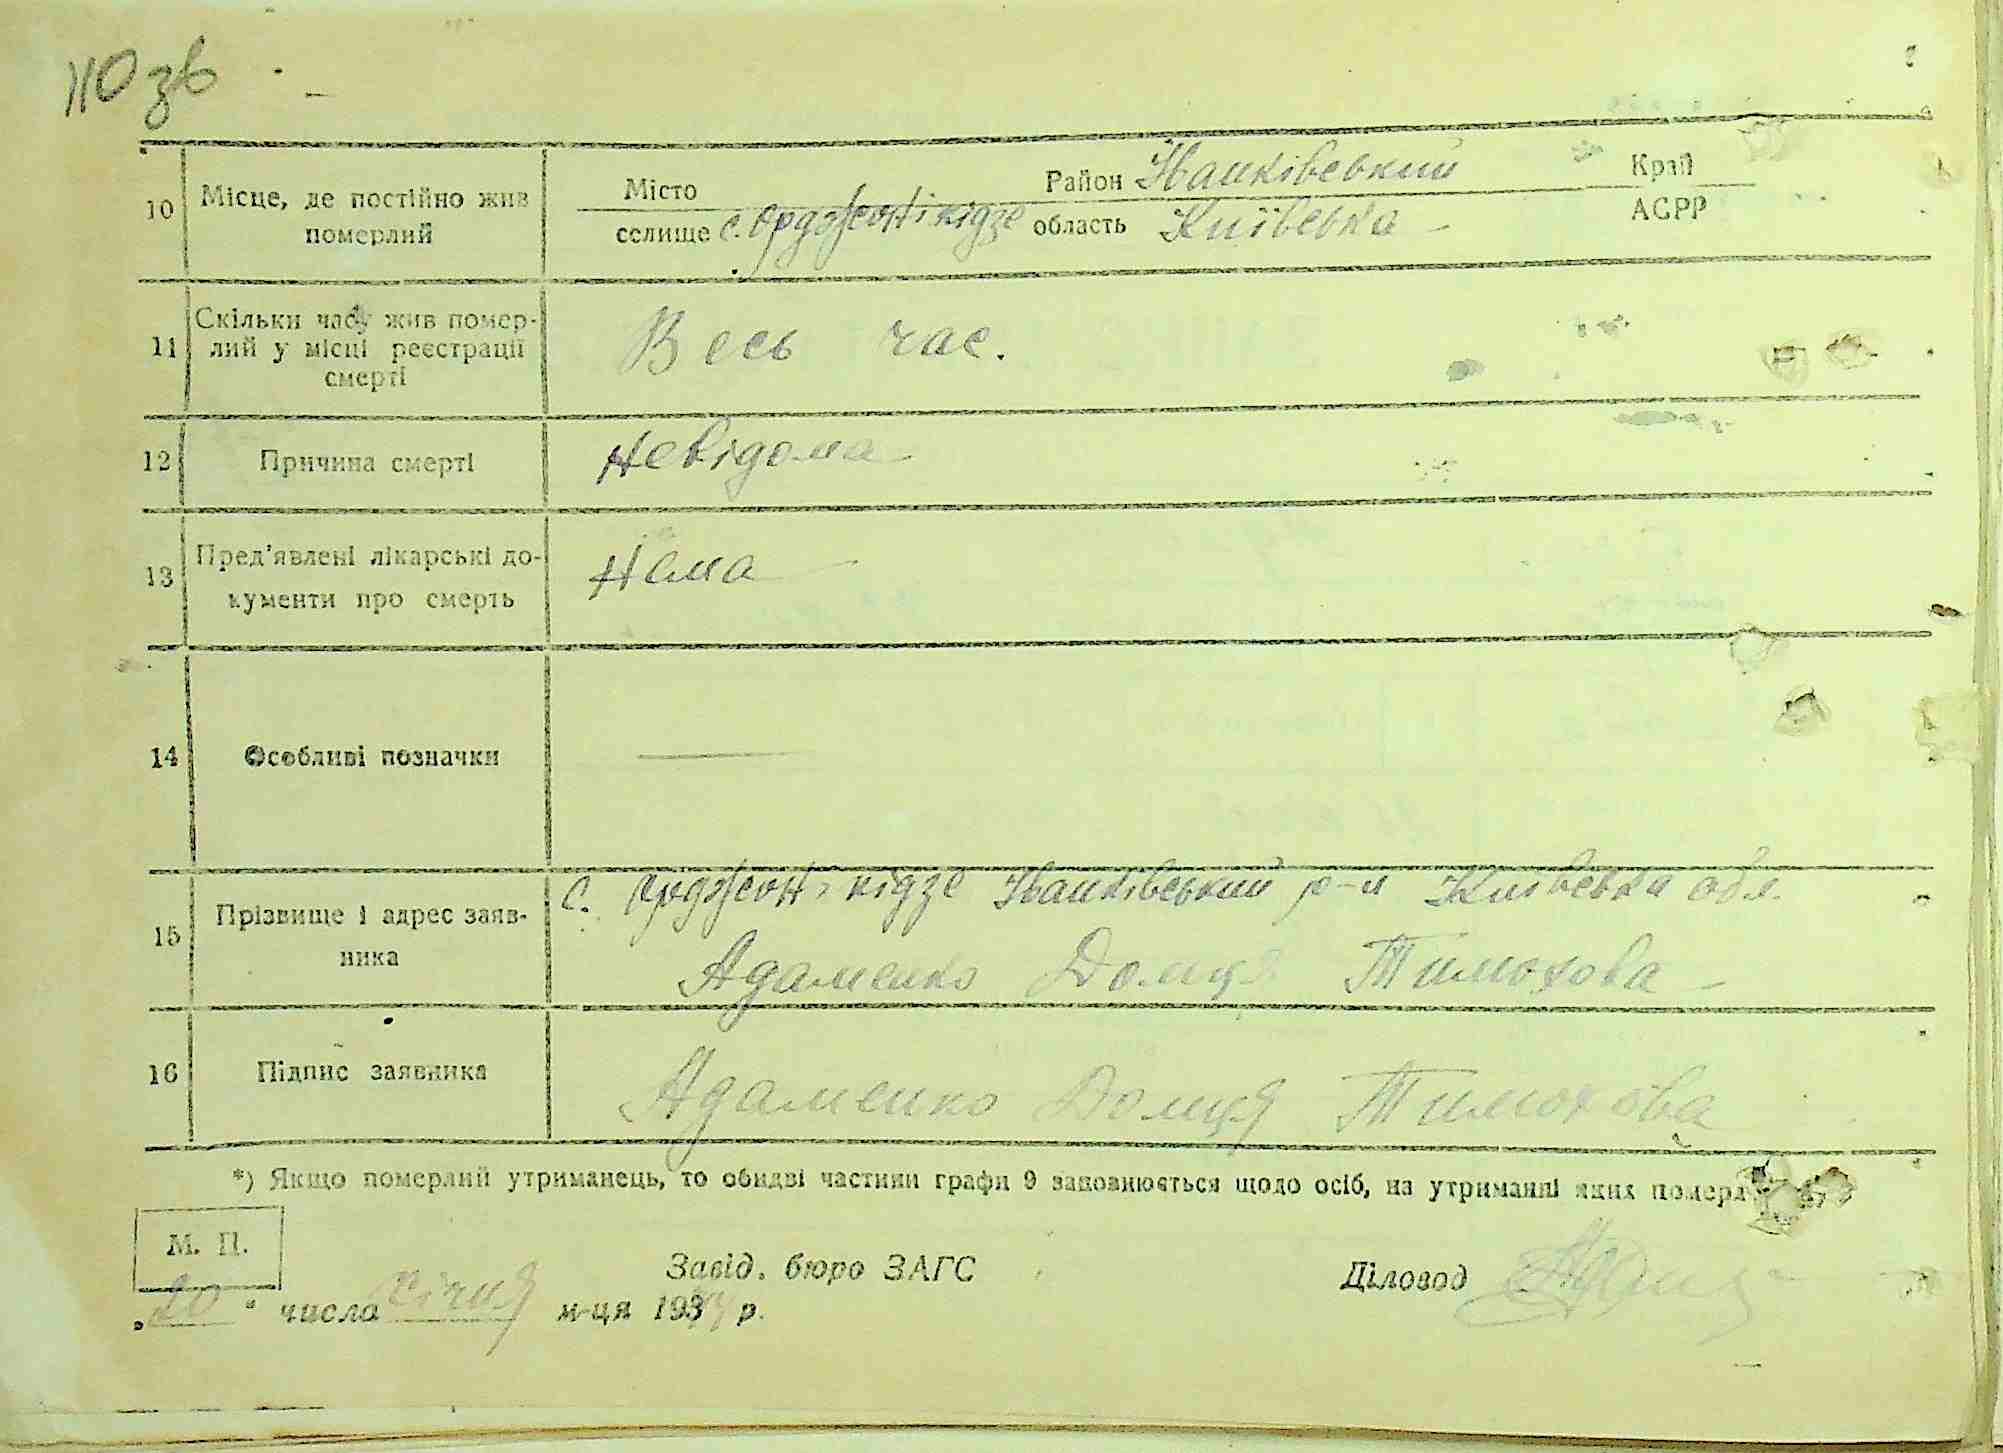 110 зв
10 Місце, де постійно жив померлий
Місто Район Іванківський Край
селище с. Орджонікідзе область Київська АСРР
11 Скільки часу жив померлий у місці реєстрації смерті
Весь час.
12 Причина смерті
Невідома
13 Пред'явлені лікарські документи про смерть
Нема
14 Особливі позначки —
15 Прізвище і адрес заявника
с. Орджонікідзе Іванківський р-н Київська обл.
Адаменко Домця Тимохова
16 Підпис заявника
Адаменко Домця Тимохова
*) Якщо померлий утриманець, то обидві частини графи 9 заповнюється щодо осіб, на утриманні яких
М. П.
Завід. бюро ЗАГС
Діловод
„20" числа січня м-ця 193 р.